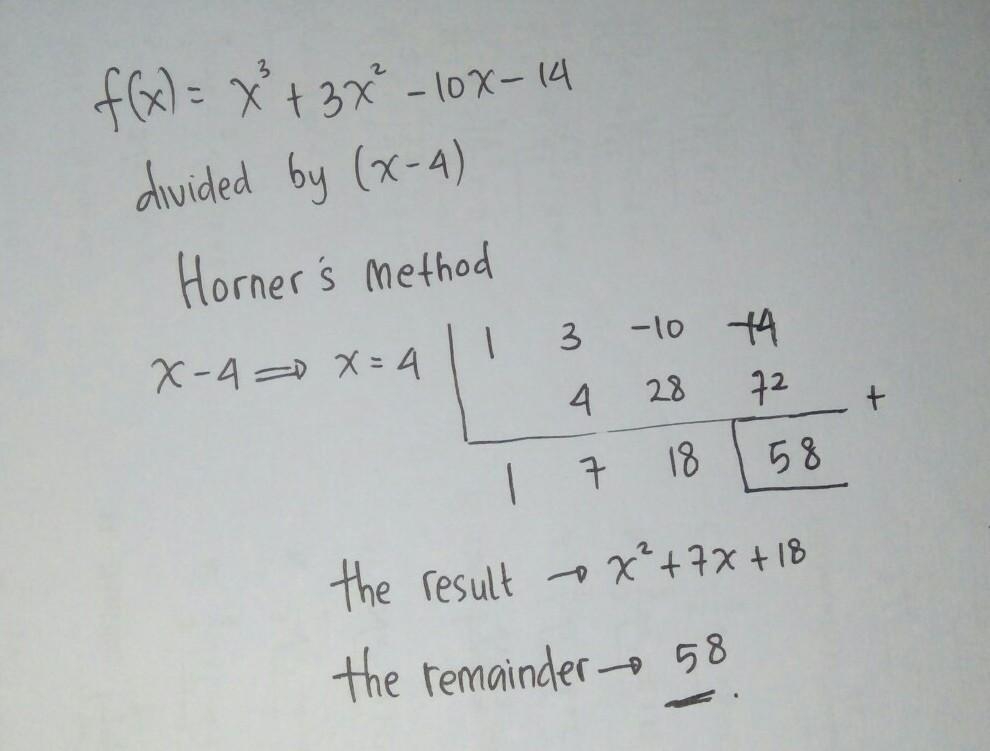 f(x) = x³ + 3x² - 10x - 14
divided by (x-4)
Horner's Method
x-4 ⇒ x = 4 | 1 3 -10 -14
4 28 72 +
1 7 18 58
the result → x² + 7x + 18
the remainder → 58.